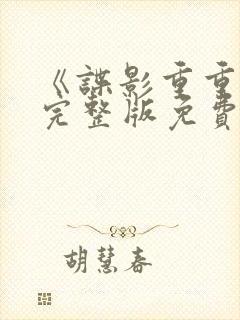 《諜影重重
完整版免費
胡慧春